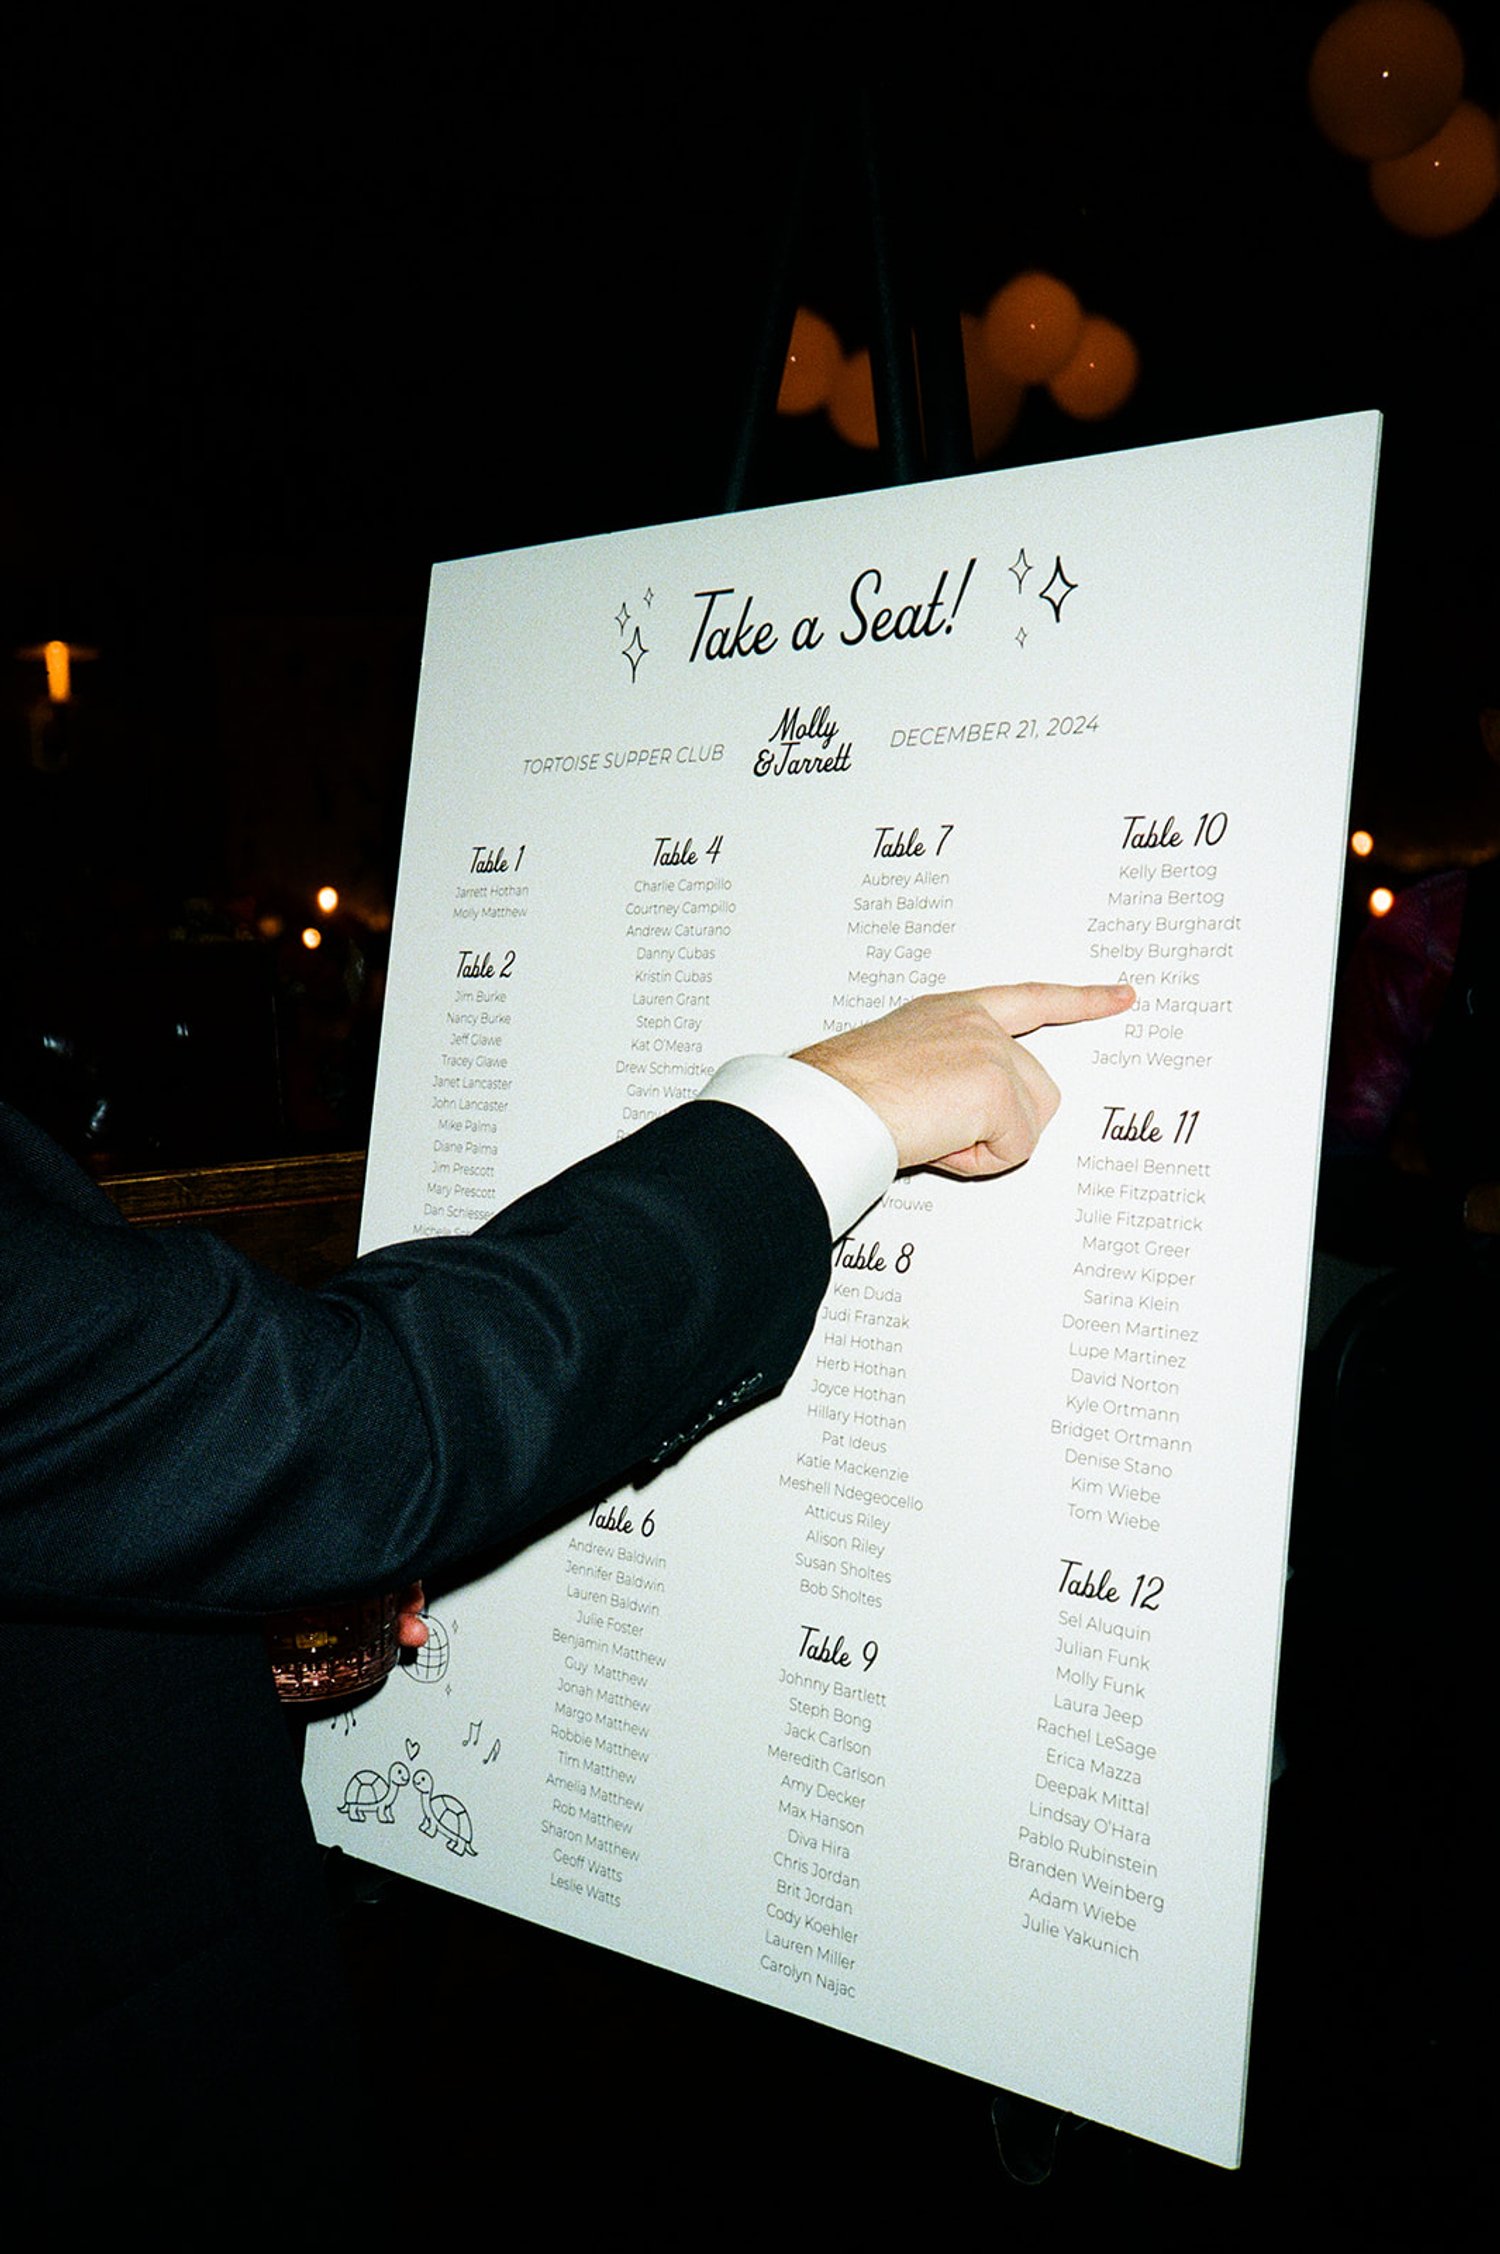 Take a Seat!
TORTOISE SUPPER CLUB
Molly
& Jarrett
DECEMBER 21, 2024
Table 1
Jarrett Hothan
Molly Matthew
Table 2
Jim Burke
Nancy Burke
Jeff Glawe
Tracey Glawe
Janet Lancaster
John Lancaster
Mike Palma
Diane Palma
Jim Prescott
Mary Prescott
Dan
Michele
Table 4
Charlie Campillo
Courtney Campillo
Andrew Caturano
Danny Cubas
Kristin Cubas
Lauren Grant
Steph Gray
Kat O'Meara
Drew Schmidtke
Gavin Watts
Table 6
Andrew Baldwin
Jennifer Baldwin
Lauren Baldwin
Julie Foster
Benjamin Matthew
Guy Matthew
Jonah Matthew
Margo Matthew
Robbie Matthew
Tim Matthew
Amelia Matthew
Rob Matthew
Sharon Matthew
Geoff Watts
Leslie Watts
Table 7
Aubrey Allen
Sarah Baldwin
Michele Bander
Ray Gage
Meghan Gage
Michael
Mary
Vrouwe
Table 8
Ken Duda
Judi Franzak
Hal Hothan
Herb Hothan
Joyce Hothan
Hillary Hothan
Pat Ideus
Katie Mackenzie
Meshell Ndegeocello
Atticus Riley
Alison Riley
Susan Sholtes
Bob Sholtes
Table 9
Johnny Bartlett
Steph Bong
Jack Carlson
Meredith Carlson
Amy Decker
Max Hanson
Diva Hira
Chris Jordan
Brit Jordan
Cody Koehler
Lauren Miller
Carolyn Najac
Table 10
Kelly Bertog
Marina Bertog
Zachary Burghardt
Shelby Burghardt
Aren Kriks
Marquart
RJ Pole
Jaclyn Wegner
Table 11
Michael Bennett
Mike Fitzpatrick
Julie Fitzpatrick
Margot Greer
Andrew Kipper
Sarina Klein
Doreen Martinez
Lupe Martinez
David Norton
Kyle Ortmann
Bridget Ortmann
Denise Stano
Kim Wiebe
Tom Wiebe
Table 12
Sel Aluquin
Julian Funk
Molly Funk
Laura Jeep
Rachel LeSage
Erica Mazza
Deepak Mittal
Lindsay O'Hara
Pablo Rubinstein
Branden Weinberg
Adam Wiebe
Julie Yakunich